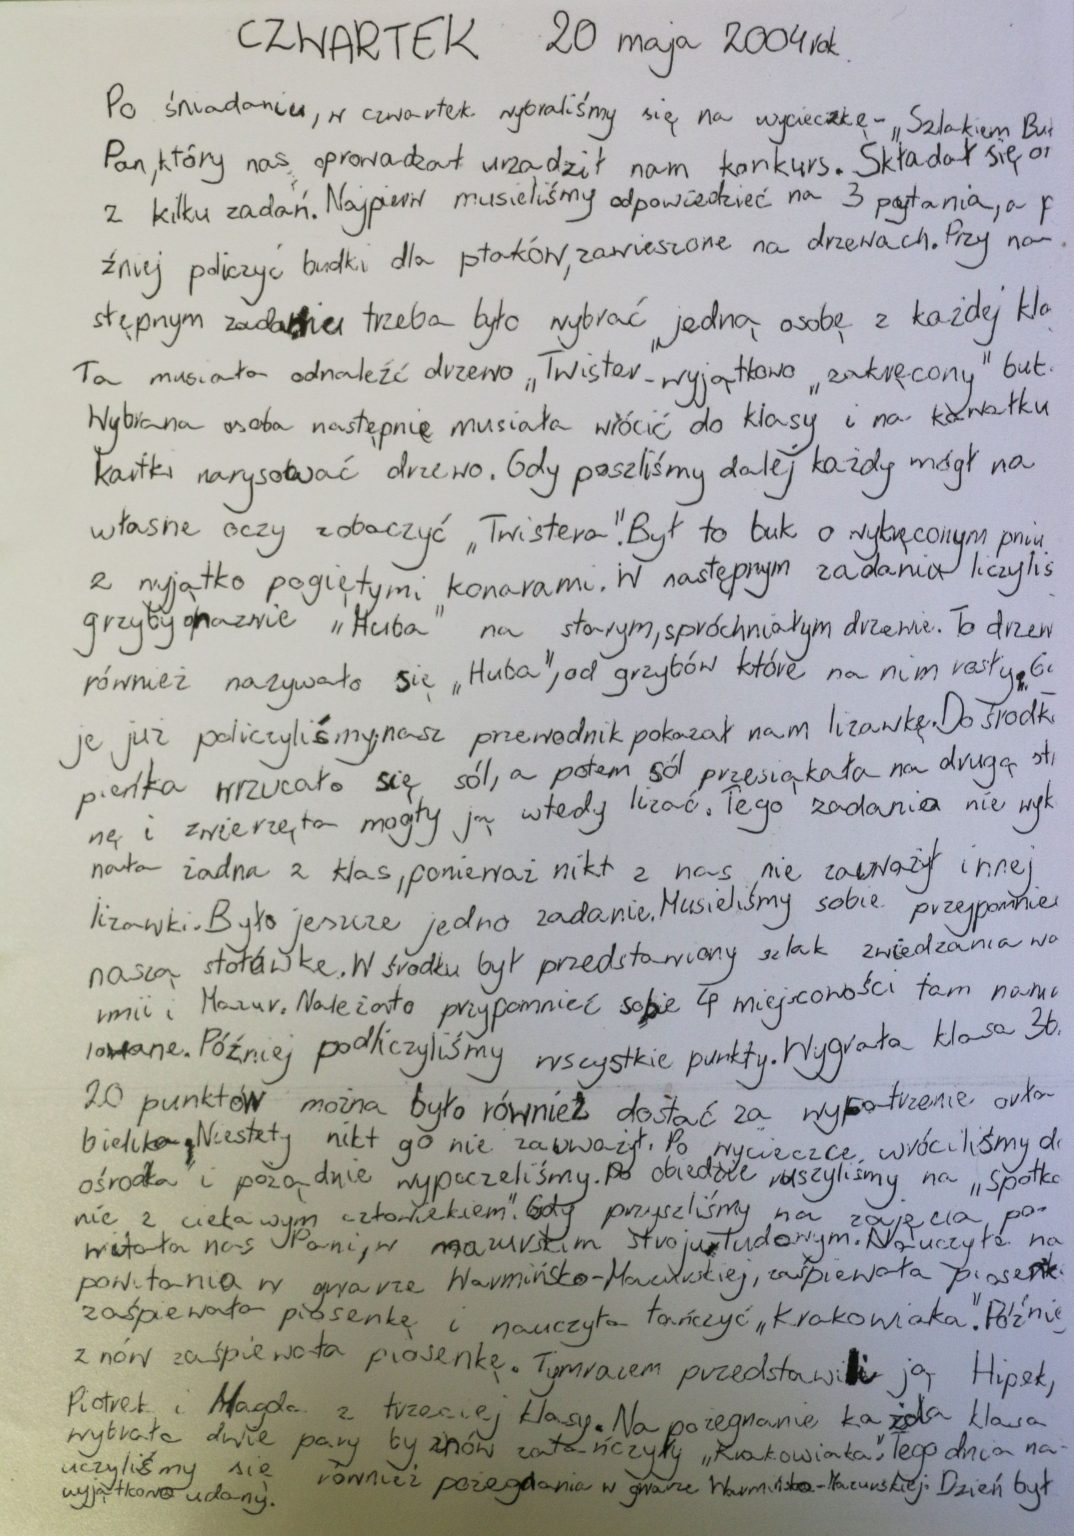 CZWARTEK 20 maja 2004 rok.
Po śniadaniu, w czwartek wybraliśmy się na wycieczkę - „Szlakiem Buk
Pan, który nas oprowadzał urządził nam konkurs. Składał się on
z kilku zadań. Najpierw musieliśmy odpowiedzieć na 3 pytania, a p
źniej policzyć budki dla ptaków, zawieszone na drzewach. Przy na-
stępnym zadaniu trzeba było wybrać jedną osobę z każdej kla
Ta musiała odnaleźć drzewo „Twister - wyjątkowo „zakręcony" buk.
Wybrana osoba następnie musiała wrócić do klasy i na kawałku
kartki narysować drzewo. Gdy poszliśmy dalej każdy mógł na
własne oczy zobaczyć „Twistera". Był to buk o wykręconym pniu
z wyjątko pogiętymi konarami. W następnym zadania liczyliś
grzyby o nazwie „Huba" na starym, spróchniałym drzewie. To drzew
również nazywało się „Huba", od grzybów które na nim rosły. G
je już policzyliśmy, nasz przewodnik pokazał nam lizawkę. Do środk
pieńka wrzucało się sól, a potem sól przesiąkała na drugą st
nę i zwierzęta mogły ją wtedy lizać. Tego zadania nie wyk
nała żadna z klas, ponieważ nikt z nas nie zauważył innej
lizawki. Było jeszcze jedno zadanie. Musieliśmy sobie przypomnie
naszą stołówkę. W środku był przedstawiony szlak zwiedzania wa
rmii i Mazur. Należało przypomnieć sobie 4 miejscowości tam nama
lowane. Później podliczyliśmy wszystkie punkty. Wygrała klasa 3b.
20 punktów można było również dostać za wypatrzenie orła
bielika. Niestety nikt go nie zauważył. Po wycieczce wróciliśmy do
ośrodka i porządnie wypoczeliśmy. Po obiedzie ruszyliśmy na „Spotka
nie z ciekawym człowiekiem". Gdy przyszliśmy na zajęcia, po-
witała nas Pani, w mazurskim stroju ludowym. Nauczyła na
powitania w gwarze Warmińsko-Mazurskiej, zaśpiewała piosenk
zaśpiewała piosenkę i nauczyła tańczyć „Krakowiaka". Późnie
znów zaśpiewała piosenkę. Tymrazem przedstawili ją Hipek,
Piotrek i Magda z trzeciej klasy. Na pożegnanie każda klasa
wybrała dwie pary by znów zatańczyły „Krakowiaka". Tego dnia na-
uczyliśmy się również pożegnania w gwarze Warmińsko-Mazurskiej. Dzień był
wyjątkowo udany.